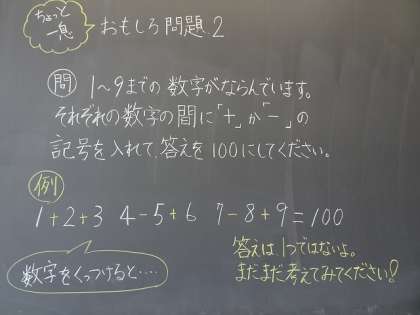 ちょっと
一息
おもしろ問題.2
問 1～9までの数字がならんでいます。
それぞれの数字の間に「+」か「-」の
記号を入れて、答えを100にしてください。
例
1+2+3 4-5+6 7-8+9=100
数字をくっつけると・・・・
答えは、1つではないよ。
まだまだ考えてみてください!